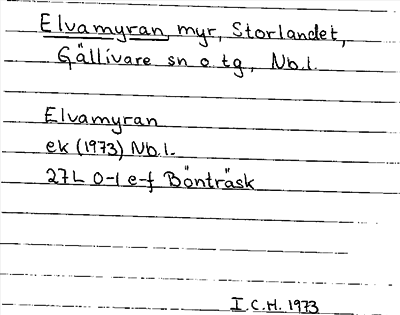 Elvamyran, myr, Storlandet,
Gällivare sn o. tg., Nb.l.
Elvamyran
ek (1973) Nb.l.
27L 0-1 e-f Bönträsk
I.C.H. 1973